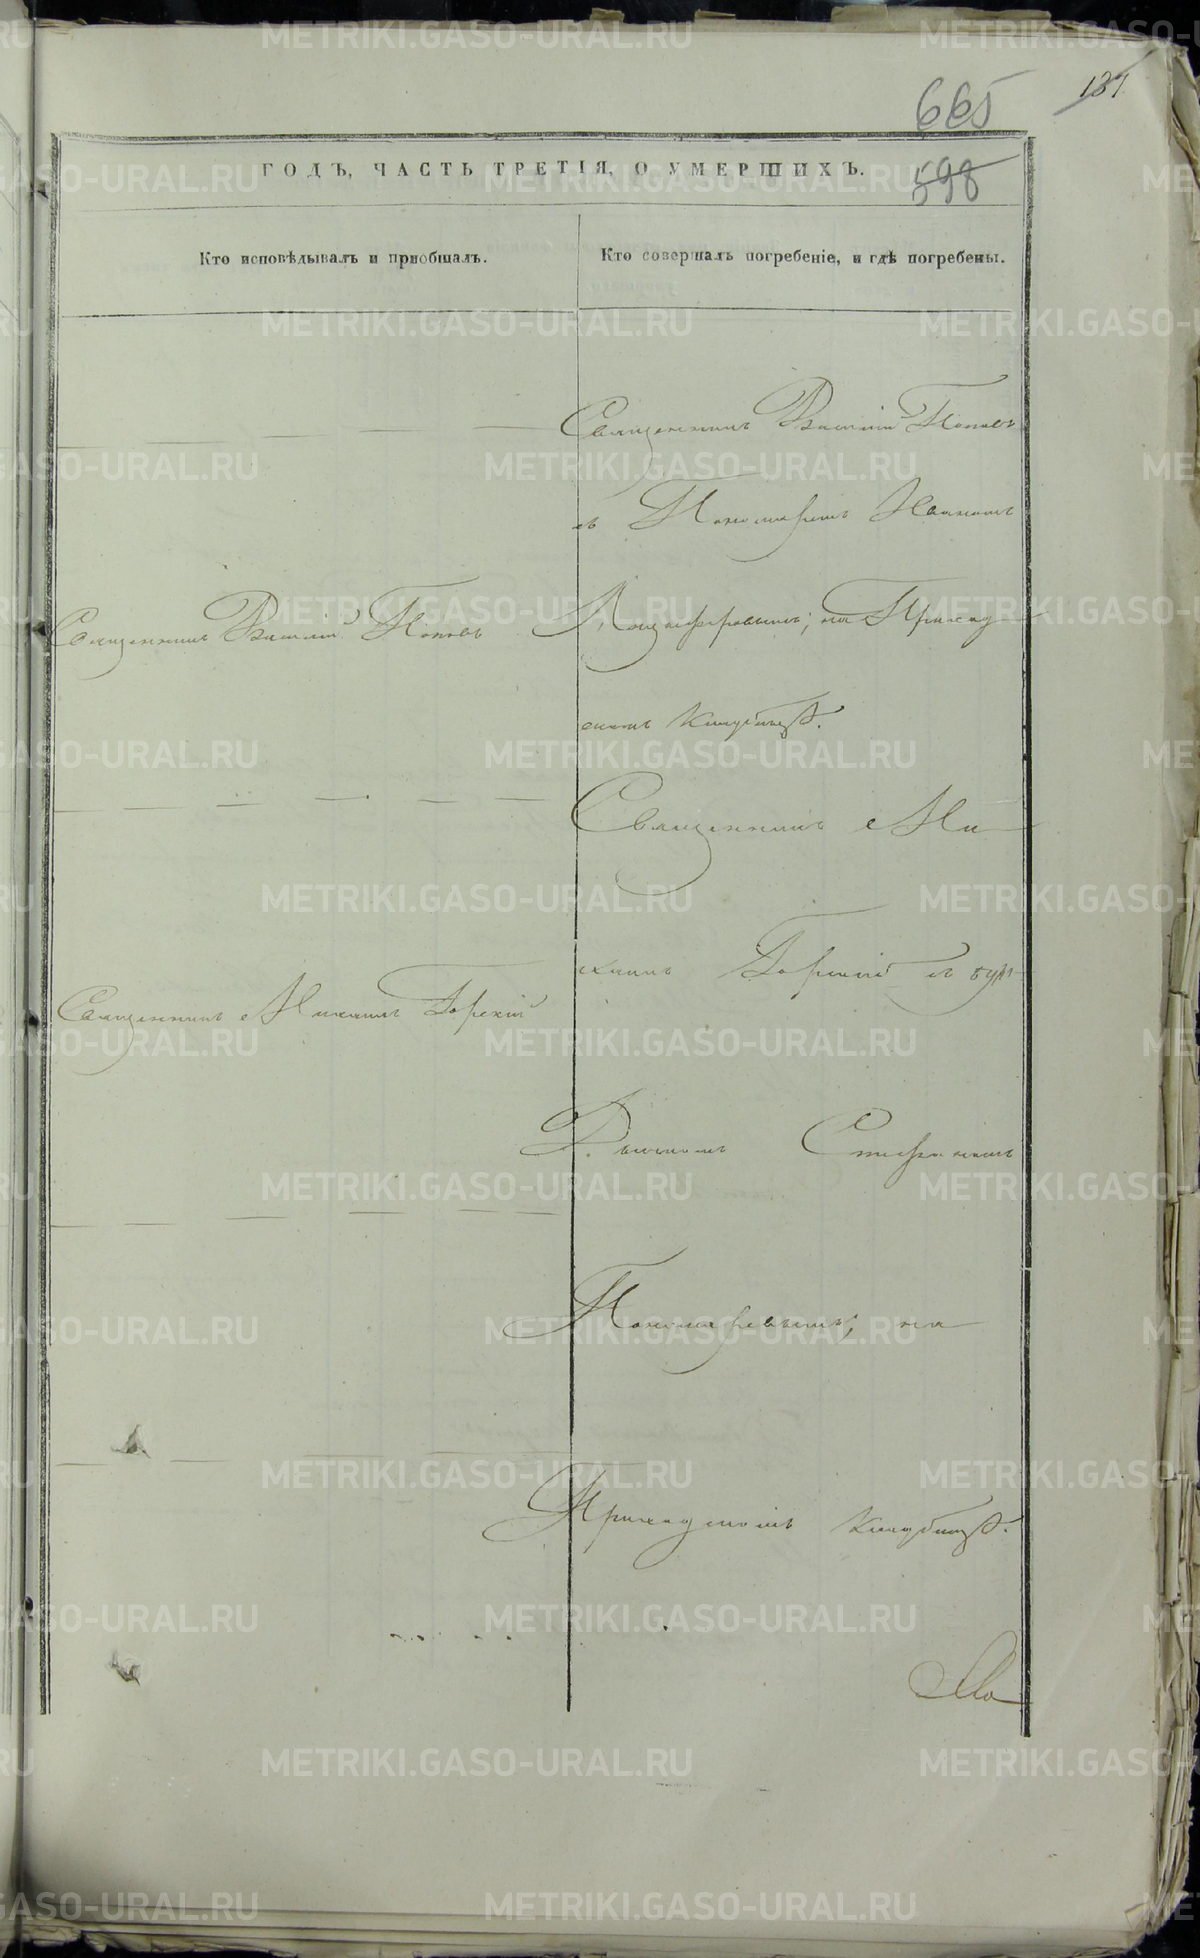 665
131
598
ГОДЪ, ЧАСТЬ ТРЕТІЯ, О УМЕРШИХЪ.
Кто исповѣдывалъ и пріобщалъ.
Кто совершалъ погребеніе, и гдѣ погребены.
Священникъ Василій Поповъ
съ Пономаремъ Иваномъ
Священникъ Василій Поповъ
на Приход
скомъ кладбищѣ.
Священникъ Ми
хаилъ Горскій съ
Священникъ Михаилъ Горскій
Дьячкомъ Стефаномъ
Пономаревымъ, на
Приходскомъ кладбищѣ.
METRIKI.GASO-URAL.RU